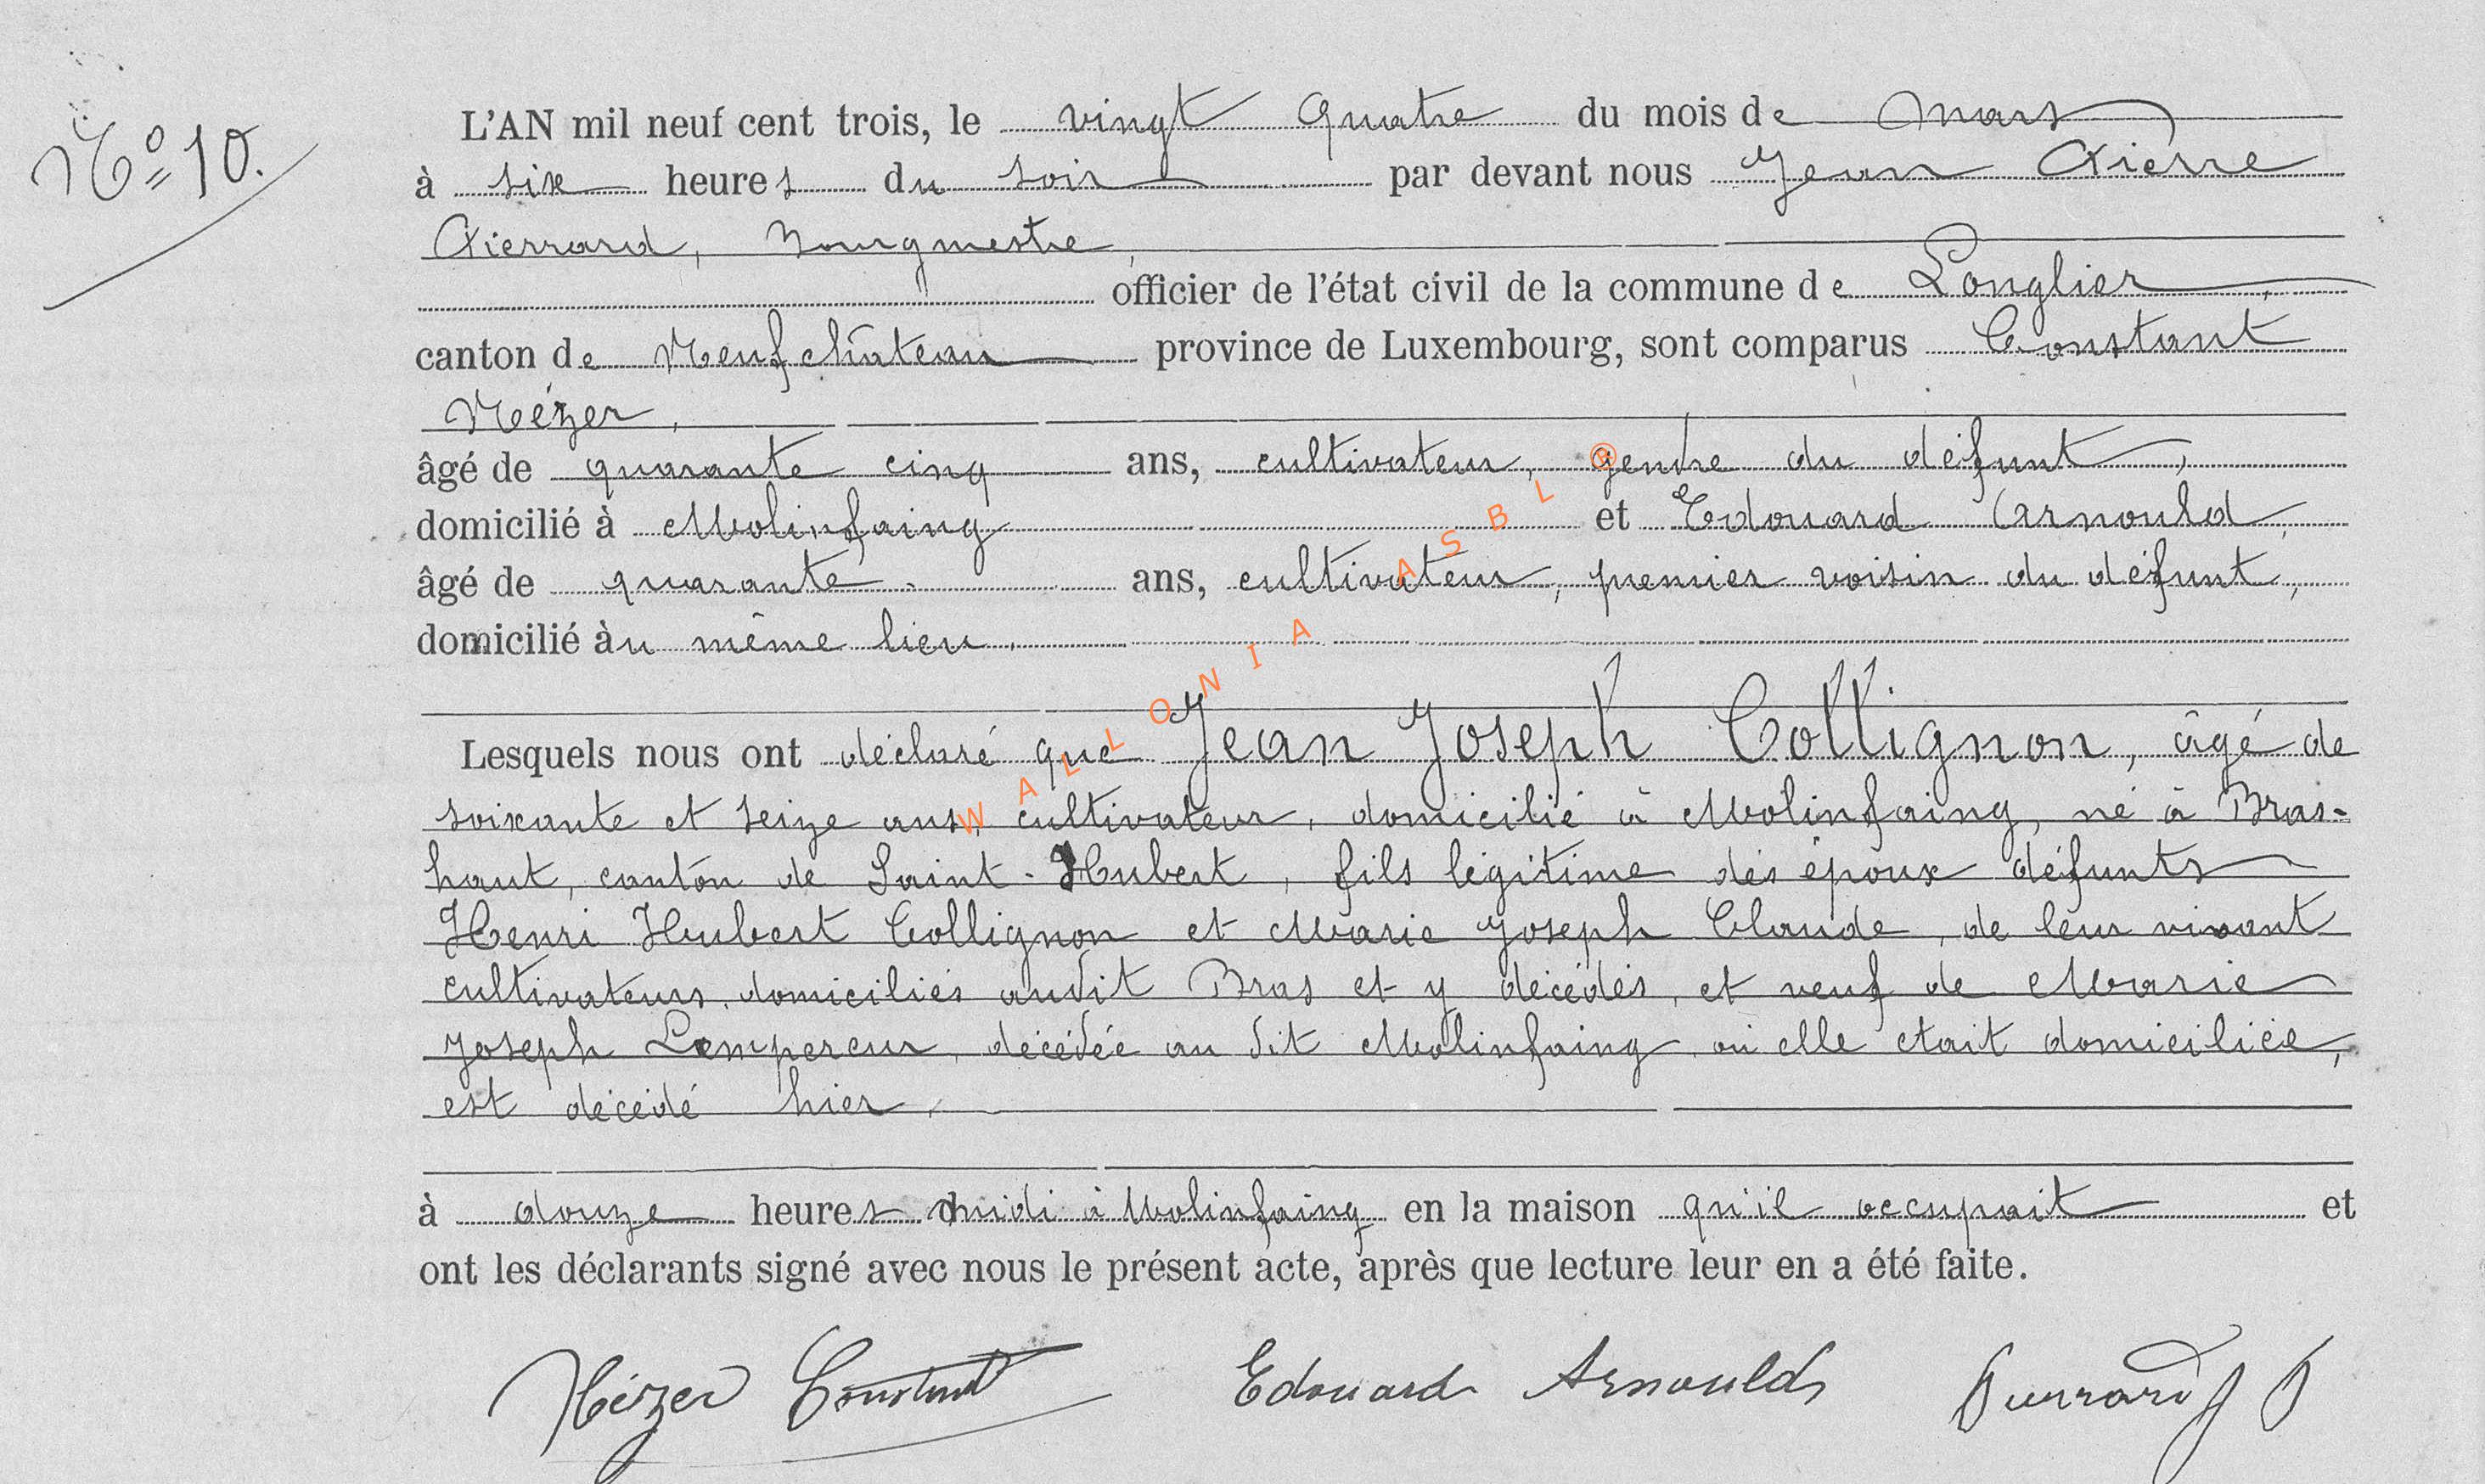 N° 10.
L'AN mil neuf cent trois, le vingt quatre du mois de Mars
à six heures du soir par devant nous Jean Pierre
Pierrard, Bourgmestre,
officier de l'état civil de la commune de Longlier,
canton de Neufchâteau province de Luxembourg, sont comparus Constant
Nézer,
âgé de quarante cinq ans, cultivateur, gendre du défunt,
domicilié à Molinfaing et Edouard Arnould,
âgé de quarante ans, cultivateur, premier voisin du défunt,
domicilié au même lieu.
Lesquels nous ont déclaré que Jean Joseph Collignon, âgé de
soixante et seize ans, cultivateur, domicilié à Molinfaing, né à Bras-
haut, canton de Saint-Hubert, fils légitime des époux défunts
Henri Hubert Collignon et Marie Joseph Claude, de leur vivant
cultivateurs domiciliés audit Bras et y décédés, et veuf de Marie
Joseph Lempereur, décédée au dit Molinfaing où elle était domiciliée,
est décédé hier,
à douze heures midi à Molinfaing en la maison qu'il occupait et
ont les déclarants signé avec nous le présent acte, après que lecture leur en a été faite.
Nézer Constant Edouard Arnould Pierrard J P
WALLONIA ASBL ®